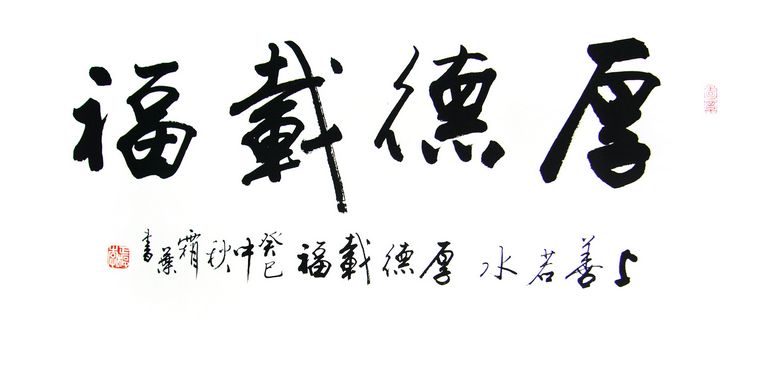 厚德載福
上善若水 厚德載福 癸巳中秋 霜葉書